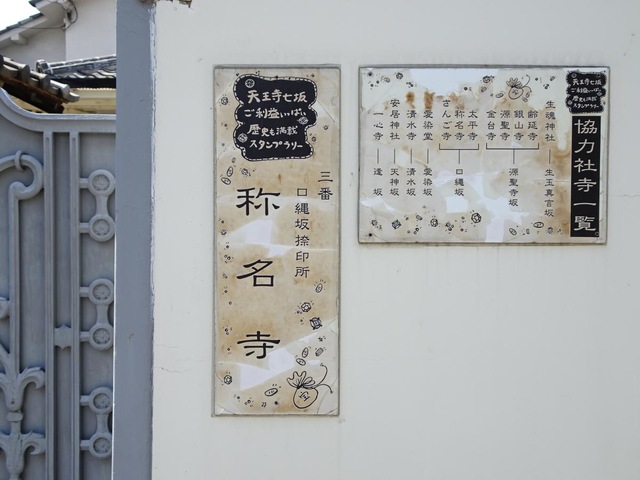 天王寺七坂
ご利益いっぱい
歴史も満載
スタンプラリー
三番
口縄坂捺印所
称名寺
天王寺七坂
ご利益いっぱい
歴史も満載
スタンプラリー
協力社寺一覧
生魂神社 ― 生玉真言坂
齢延寺
銀山寺
源聖寺
金台寺
源聖寺坂
太平寺
称名寺
さんご寺
口縄坂
愛染堂 ― 愛染坂
清水寺 ― 清水坂
安居神社 ― 天神坂
一心寺 ― 逢坂